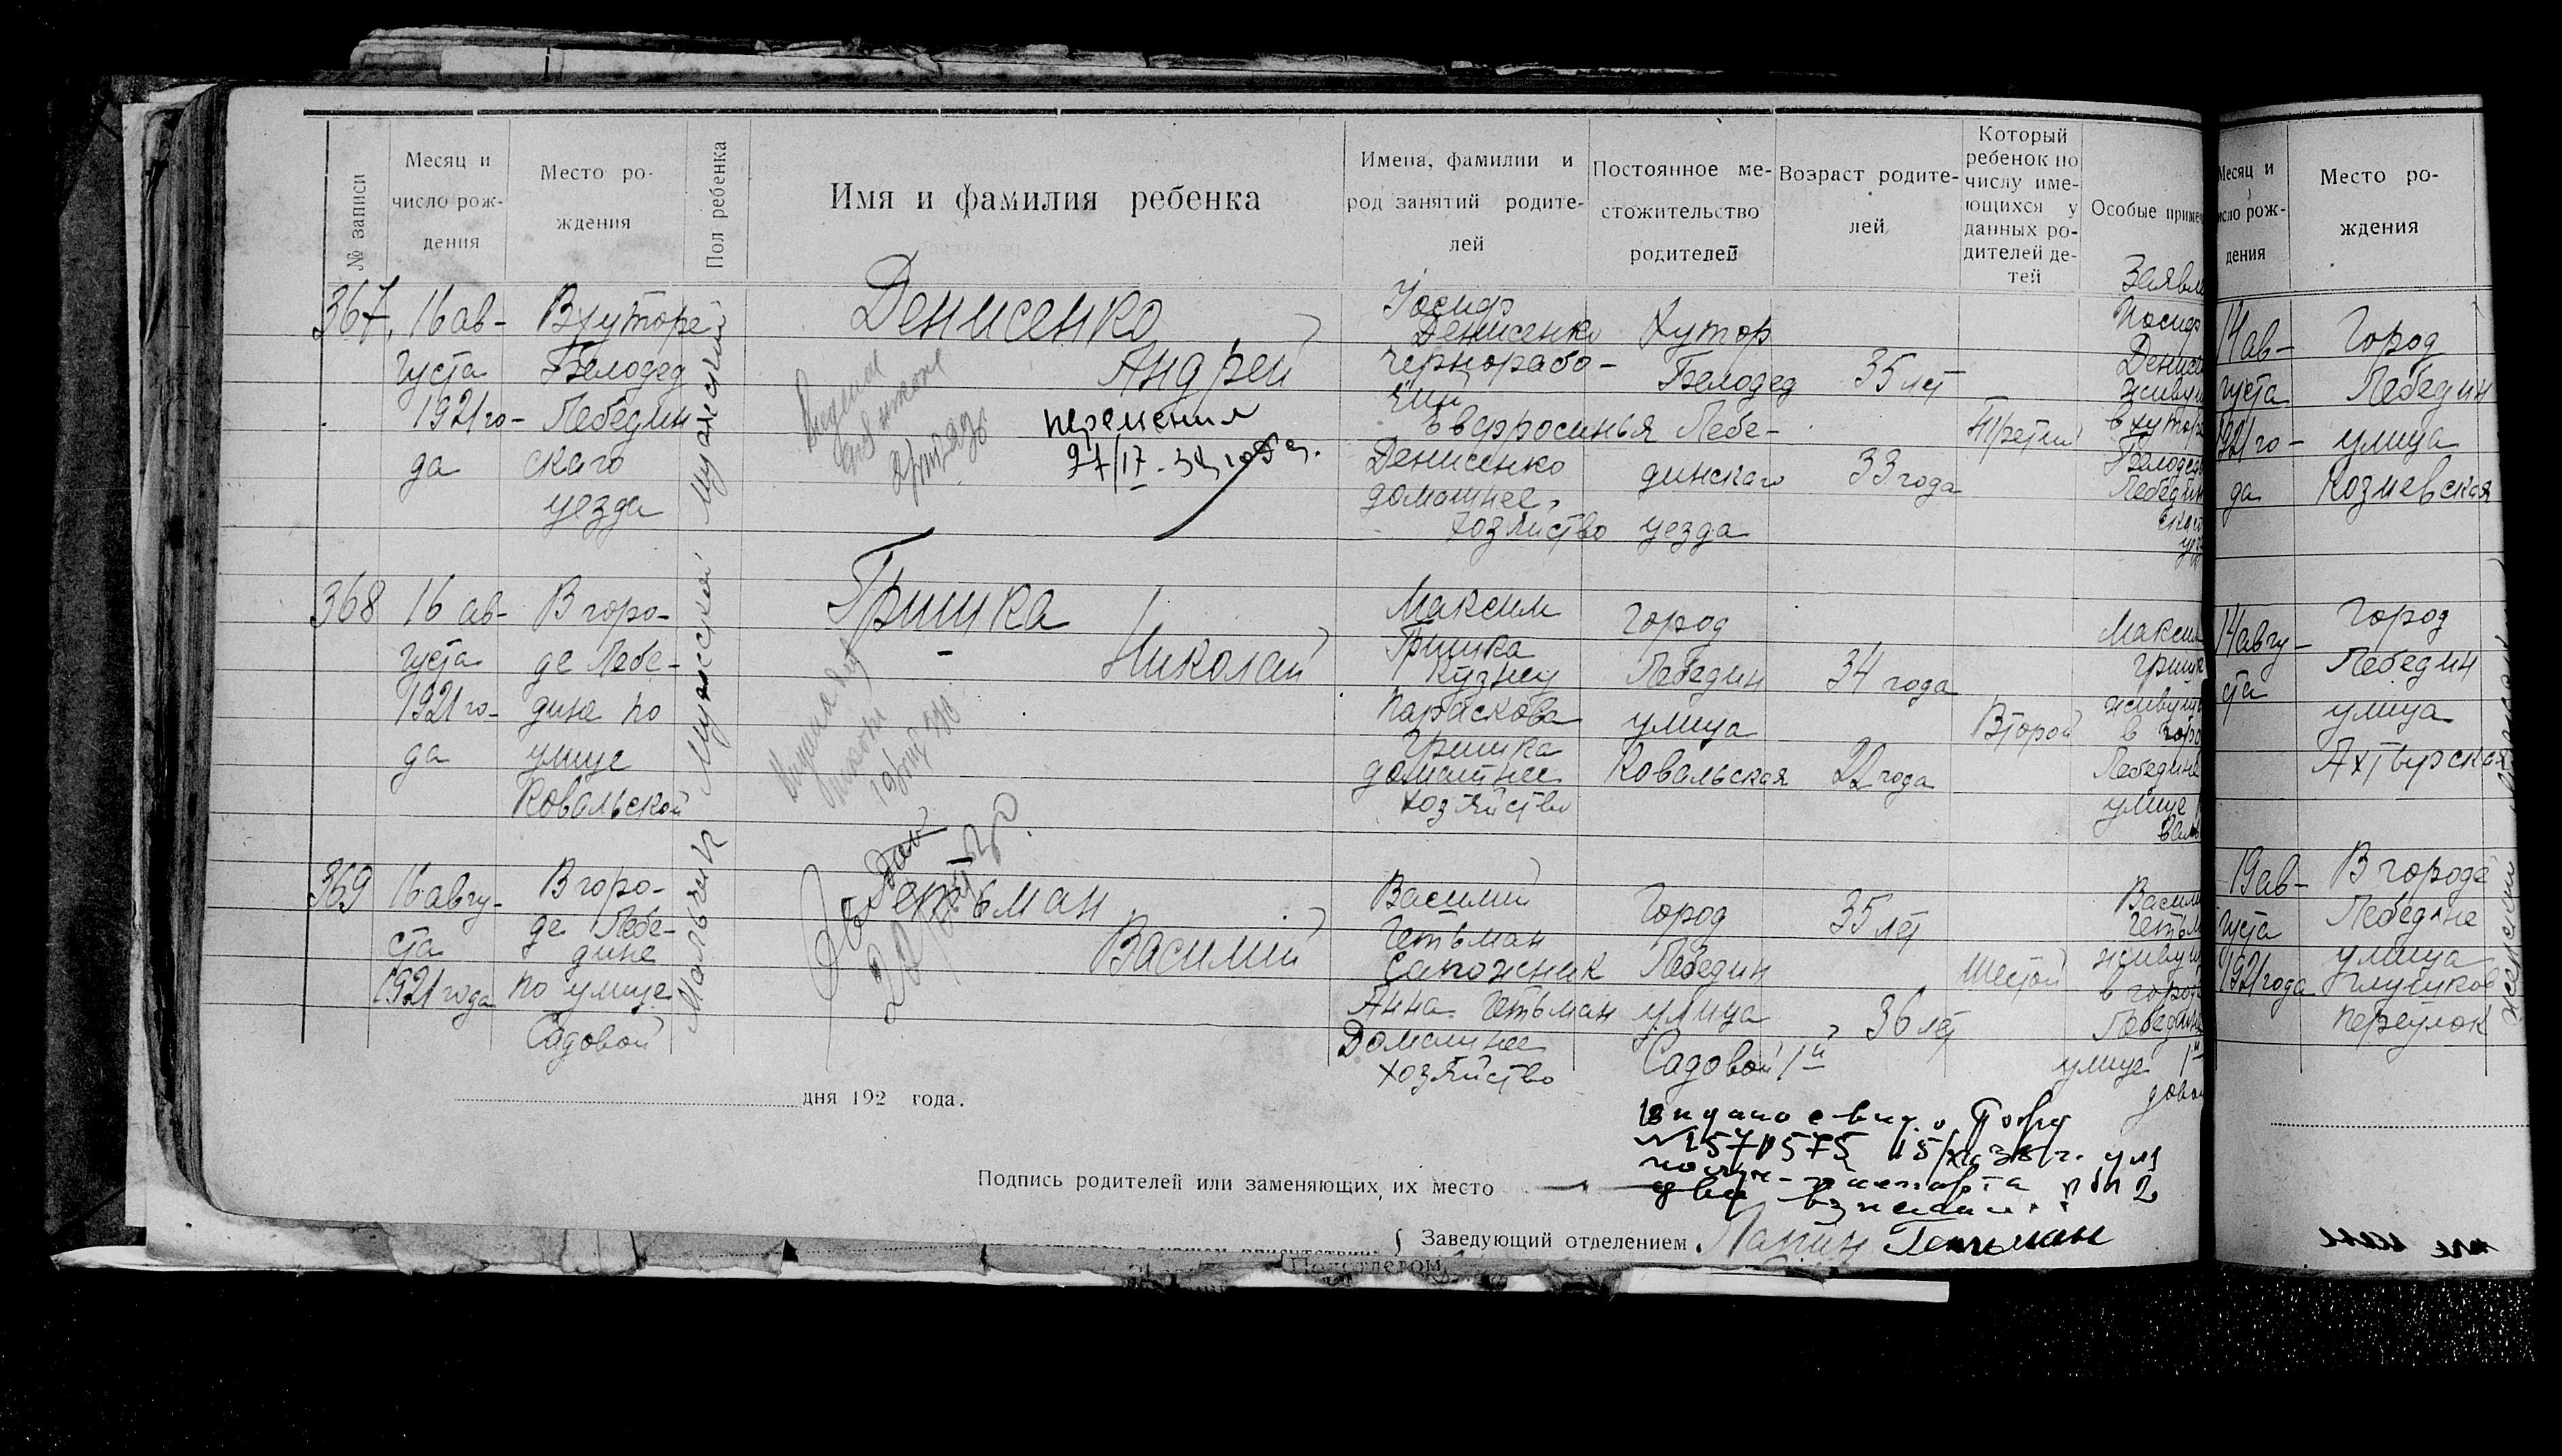 № записи
Месяц и число рождения
Место рождения
Пол ребенка
Имя и фамилия ребенка
Имена, фамилии и род занятий родителей
Постоянное местожительство родителей
Возраст родителей
Который ребенок по числу имеющихся у данных родителей детей
Особые примеч
367
16 ав-
густа
1921 го-
да
В хуторе
Белодед
Лебедин-
скаго
уезда
Мужской
Денисенко
Андрей
Иосиф
Денисенко
чернорабо-
чий
Евфросинья
Денисенко
домашнее
хозяйство
Хутор
Белодед
Лебе-
динскаго
уезда
35 лет
33 года
Третий
Заявл
Иосиф
Денисен
живущ
в хуторе
Белодед
Лебедин
скаго
уез
368
16 ав-
густа
1921 го-
да
В горо-
де Лебе-
дине по
улице
Ковальской
Мужеский
Гришка
Николай
Максим
Гришка
Кузнец
Параскова
Гришка
домашнее
хозяйство
Город
Лебедин
улица
Ковальская
34 года
22 года
Второй
Максим
Гришк
живущ
в горо
Лебедине
улице
369
16 авгу-
ста
1921 года
В горо-
де Лебе-
дине
по улице
Садовой
Мальчик
Гетьман
Василий
Василий
Гетьман
Сапожник
Анна Гетьман
Домашнее
хозяйство
Город
Лебедин
улица
Садовой 1й
35 лет
36 лет
Шестой
Васили
Гетьм
живущ
в город
Лебедине
улице 1й
дня 192 года.
Подпись родителей или заменяющих их место
Заведующий отделением
Гетьман
Месяц и
число рож-
дения
Место ро-
ждения
14 ав-
густа
1921 го-
да
Город
Лебедин
улица
14 авгу-
ста
Город
Лебедин
улица
Ахтырская
19 ав-
густа
1921 года
В городе
Лебедине
улица
переулок